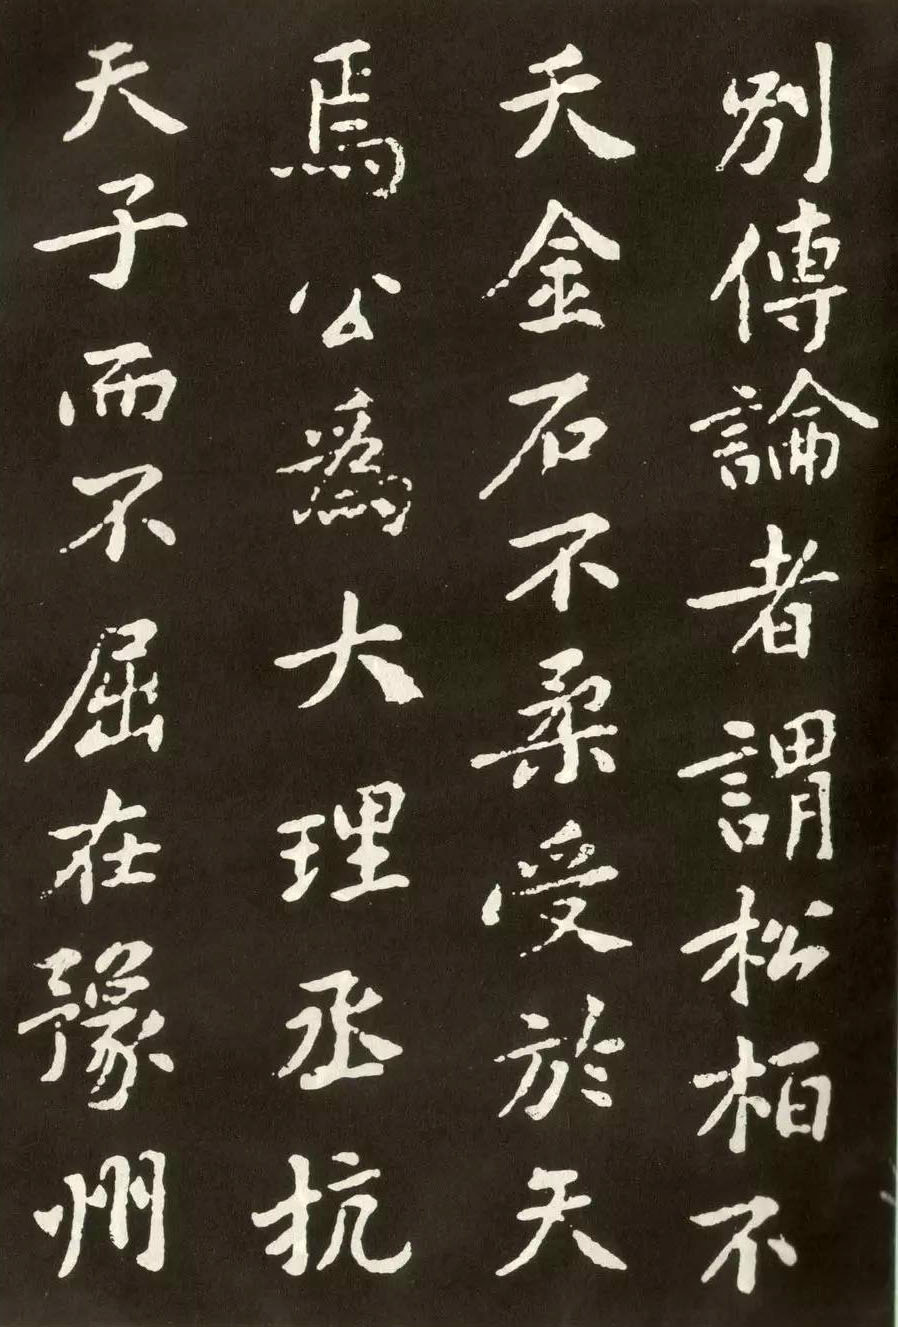 別傳論者謂松柏不
夭金石不柔受於天
焉公爲大理丞抗
天子而不屈在豫州